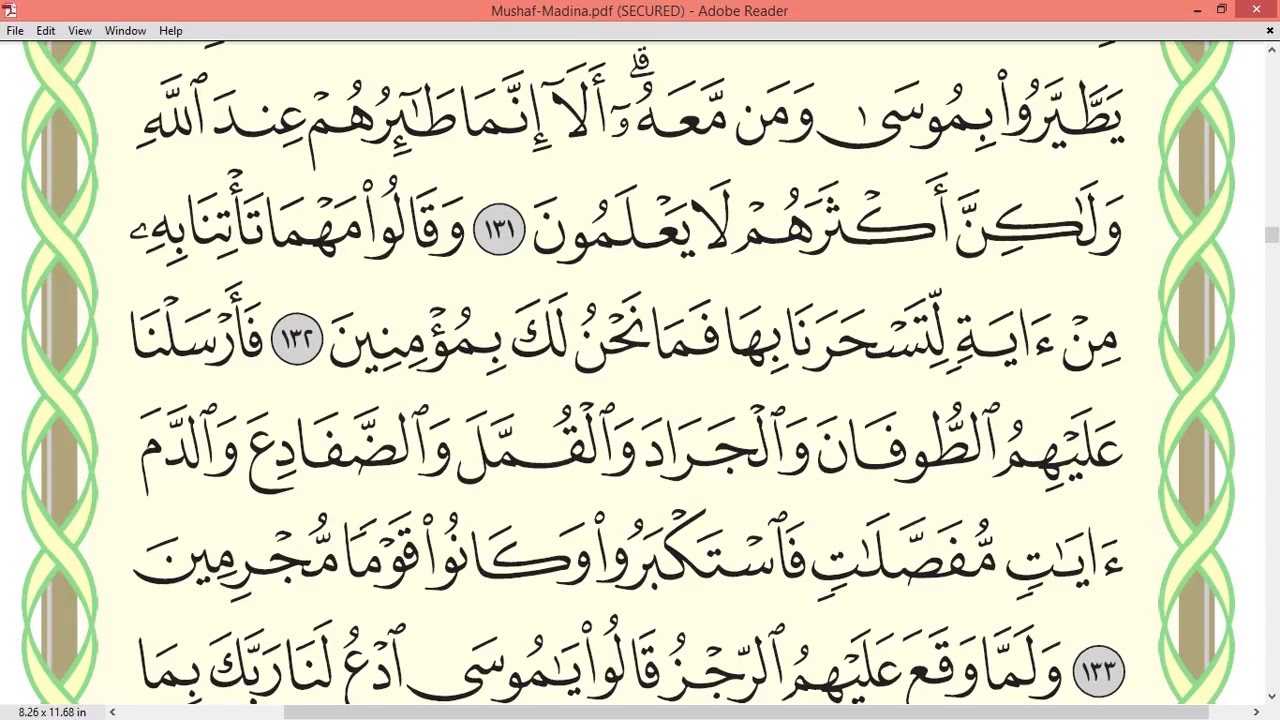 Mushaf-Madina.pdf (SECURED) - Adobe Reader
File Edit View Window Help
يَطَّيَّرُوا۟ بِمُوسَىٰ وَمَن مَّعَهُۥٓ ۗ أَلَآ إِنَّمَا طَـٰٓئِرُهُمْ عِندَ ٱللَّهِ
وَلَـٰكِنَّ أَكْثَرَهُمْ لَا يَعْلَمُونَ ١٣١ وَقَالُوا۟ مَهْمَا تَأْتِنَا بِهِۦ
مِنْ ءَايَةٍ لِّتَسْحَرَنَا بِهَا فَمَا نَحْنُ لَكَ بِمُؤْمِنِينَ ١٣٢ فَأَرْسَلْنَا
عَلَيْهِمُ ٱلطُّوفَانَ وَٱلْجَرَادَ وَٱلْقُمَّلَ وَٱلضَّفَادِعَ وَٱلدَّمَ
ءَايَـٰتٍ مُّفَصَّلَـٰتٍ فَٱسْتَكْبَرُوا۟ وَكَانُوا۟ قَوْمًا مُّجْرِمِينَ
١٣٣ وَلَمَّا وَقَعَ عَلَيْهِمُ ٱلرِّجْزُ قَالُوا۟ يَـٰمُوسَى ٱدْعُ لَنَا رَبَّكَ بِمَا
8.26 x 11.68 in